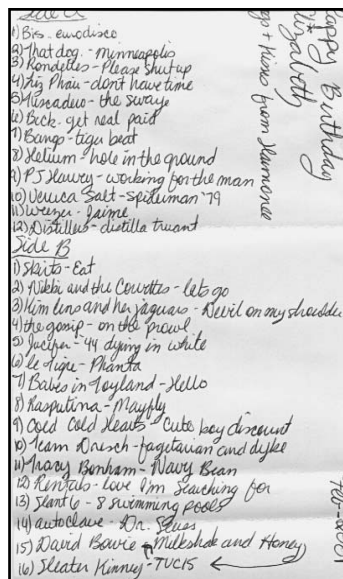 Side A
1) Bis - eurodisco
2) that dog. - Minneapolis
3) Rondelles - Please shut up
4) Liz Phair - don't have time
5) Tuscadero - the swaye
6) Beck - get real paid
7) Bangs - tiger beat
8) Helium - hole in the ground
9) PJ Harvey - working for the man
10) Veruca Salt - Spiderman '79
11) Weezer - Jaime
12) Distillers - distilla truant
Side B
1) Skirts - Eat
2) Nikki and the Corvettes - lets go
3) Kim Lins and her jaguars - Devil on my shoulder
4) the gossip - on the prowl
5) Jucifer - '44 dying in white
6) le Tigre - Phanta
7) Babes in Toyland - Hello
8) Rasputina - Mayfly
9) Cold Cold Hearts - Cute boy discount
10) Team Dresch - fagetarian and dyke
11) Tracy Bonham - Navy Bean
12) Rentals - love I'm searching for
13) Slant 6 - 8 swimming pools
14) autoclave - Dr. Seuss
15) David Bowie - Milkshake and Honey
16) Sleater Kinney - TVC15
Happy Birthday
Elizabeth
+ Kisses from